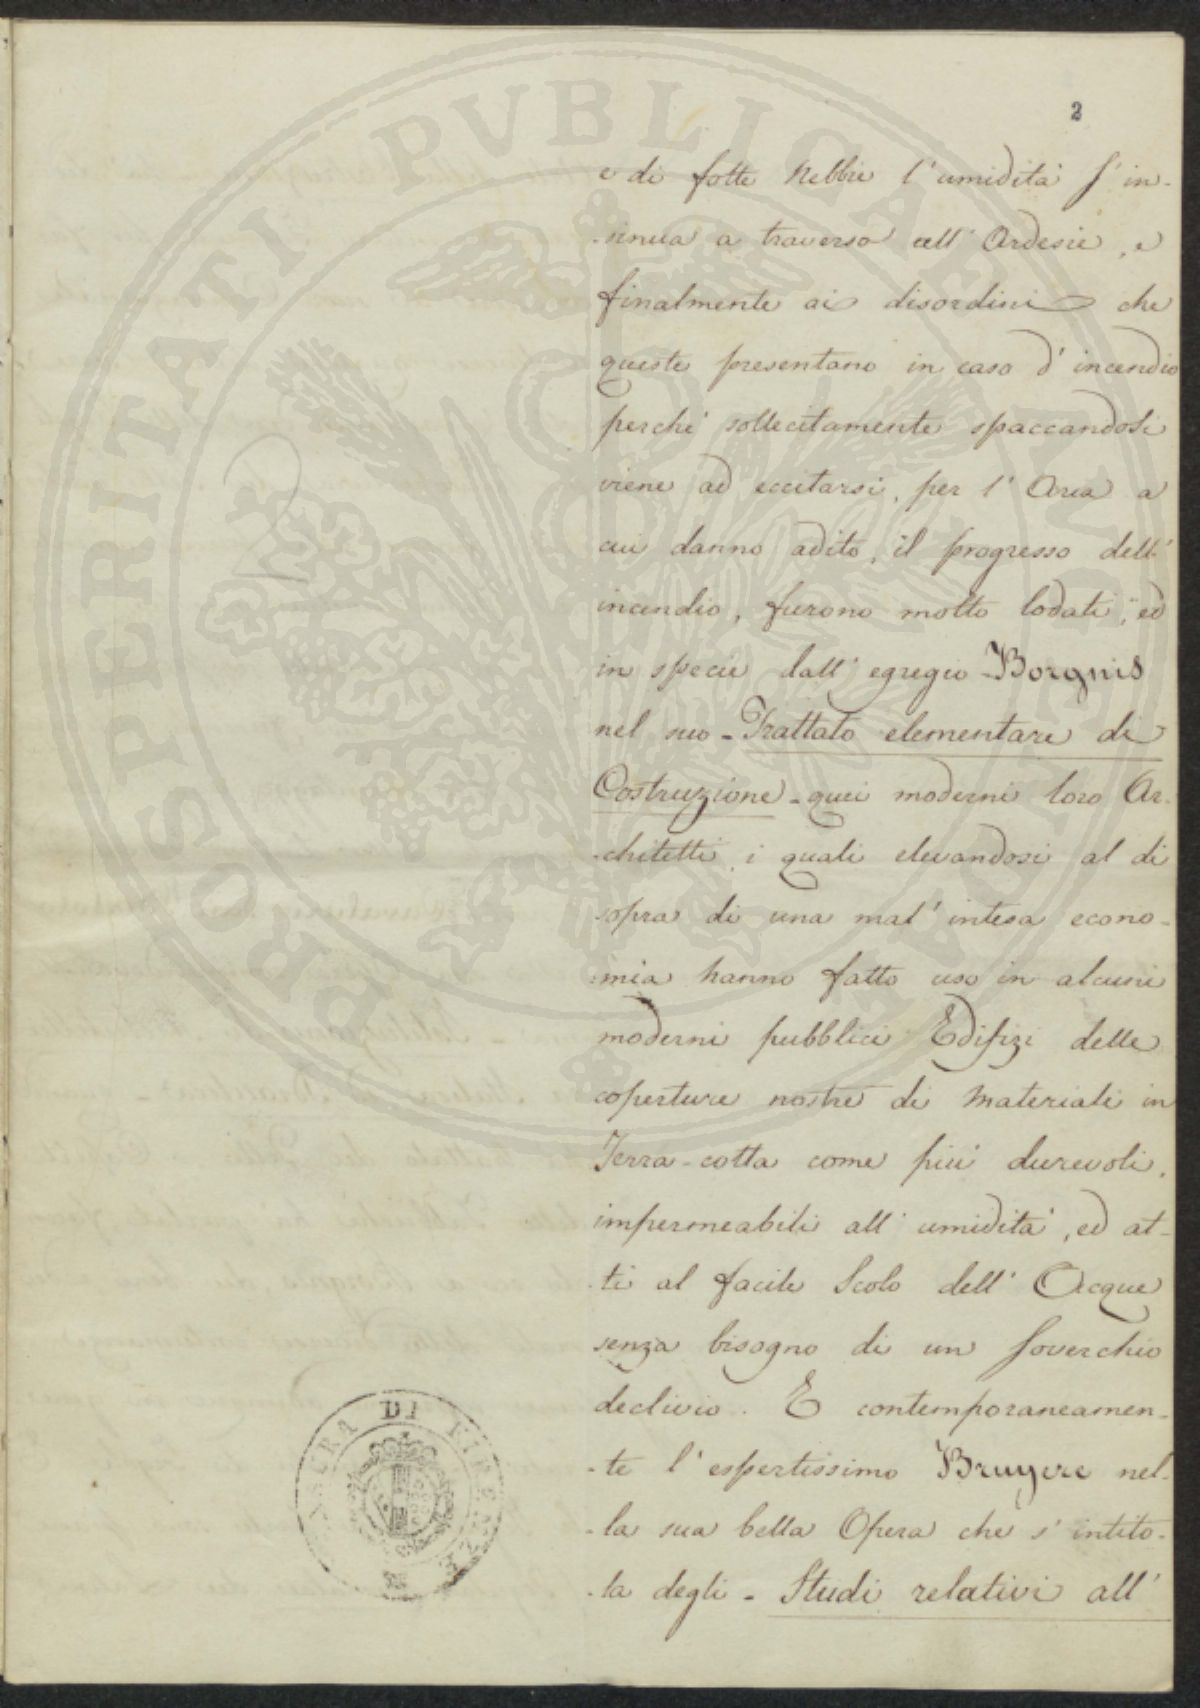 2
e di folte Nebbie l'umidità s'in-
-sinua a traverso all'Ardesie, e
finalmente ai disordini che
queste presentano in caso d'incendio
perchè sollecitamente spaccandosi
viene ad eccitarsi, per l'Area a
cui danno adito, il progresso dell'
incendio, furono molto lodati, ed
in specie dall'egregio Borgnis
nel suo - Trattato elementare di
Costruzione - quei moderni loro Ar-
-chitetti, i quali elevandosi al di
sopra di una mal'intesa econo-
-mia hanno fatto uso in alcuni
moderni pubblici Edifizi delle
coperture nostre di Materiali in
Terra-cotta come più durevoli,
impermeabili all'umidità, ed at-
-ti al facile Scolo dell'Acque
senza bisogno di un soverchio
declivio. E contemporaneamen-
-te l'espertissimo Bruyere nel-
-la sua bella Opera che s'intito-
-la degli - Studi relativi all'
PROSPERITATI PVBLICAE
DI FIRENZE